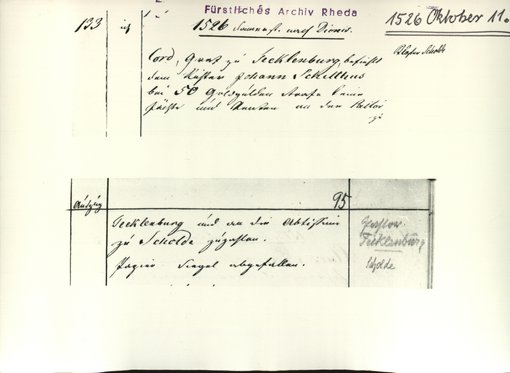 Fürstliches Archiv Rheda
1526 Oktober 11.
133
1526 Donnerst. nach Dionis.
Kloster Scholde
Cord, Graf zu Tecklenburg befiehlt
dem Küster Johann
bei 50 Goldgulden Strafe keine
Pächte und Renten an den
95
Auszug
Tecklenburg und an die Äbtissin
zu Scholde zu zahlen.
Papier Siegel abgefallen.
Grafen
Tecklenburg
Scholde